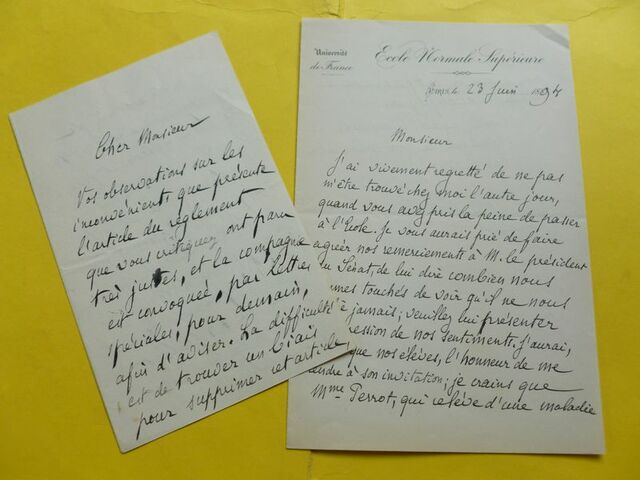 Cher Monsieur
Vos observations sur les
inconvénients que présente
l'article du règlement
que vous critiquez ont paru
très justes, et la compagnie
est convoquée, par lettres
spéciales, pour demain,
afin d'aviser. La difficulté
est de trouver un biais
pour supprimer cet article
Université
de France
Ecole Normale Supérieure
Paris, le 23 Juin 1894
Monsieur
J'ai vivement regretté de ne pas
m'être trouvé chez moi l'autre jour,
quand vous avez pris la peine de passer
à l'Ecole. Je vous aurais prié de faire
agréer nos remerciements à M. le président
du Sénat, de lui dire combien nous
sommes touchés de voir qu'il ne nous
jamais ; veuillez lui présenter
ression de nos sentiments. J'aurai,
que nos élèves, l'honneur de me
rendre à son invitation ; je crains que
Mme Perrot, qui relève d'une maladie